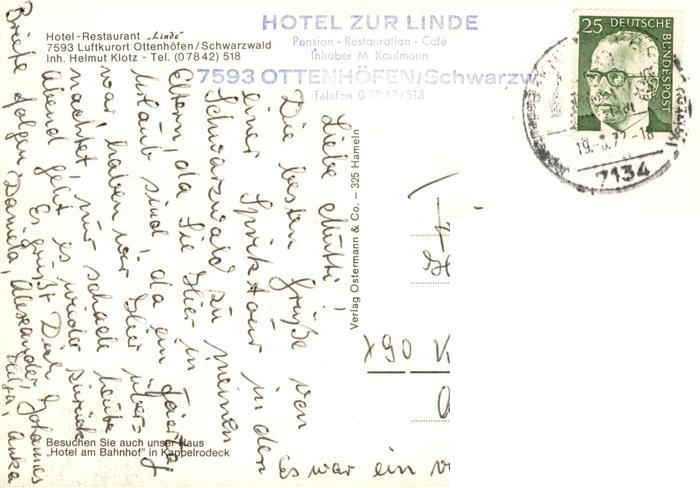 Hotel-Restaurant „Linde"
7593 Luftkurort Ottenhöfen/Schwarzwald
Inh. Helmut Klotz - Tel. (07842) 518
HOTEL ZUR LINDE
Pension - Restauration - Café
Inhaber M. Kaufmann
7593 OTTENHÖFEN/Schwarzw
Telefon 07842/513
25 DEUTSCHE
BUNDESPOST
7134
Liebe Mutti!
Die besten Grüße von
einer Spritztour in den
Schwarzwald zu meinen
Eltern, da sie hier in
Urlaub sind, da ein Feiertag
war, haben wir hier über-
nachtet, nur schade heute
abend geht es wieder zurück
Es grüßt Dich Johannes
Briefe folgen Daniela, Alexander,
Helga, Anka
Es war ein
Verlag Ostermann & Co. – 325 Hameln
Besuchen Sie auch unser Haus
„Hotel am Bahnhof" in Kappelrodeck